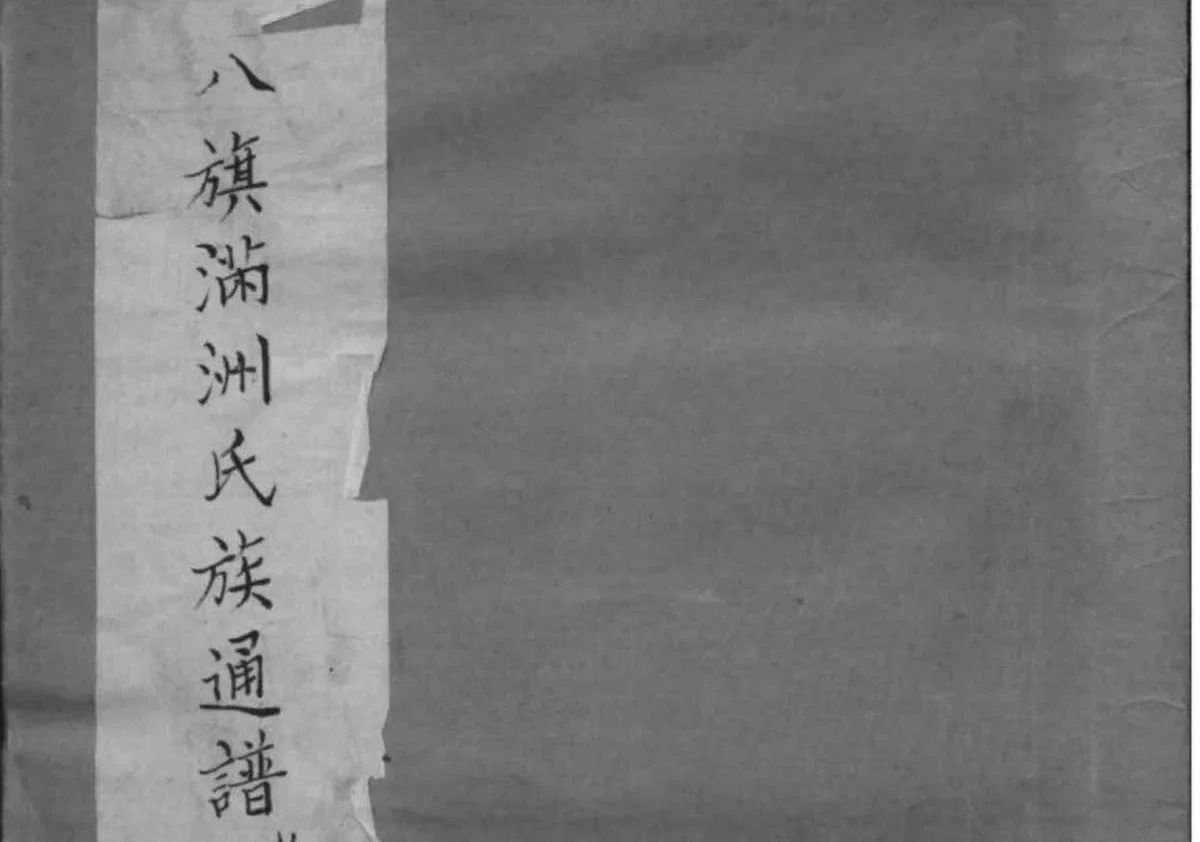 八旗滿洲氏族通譜